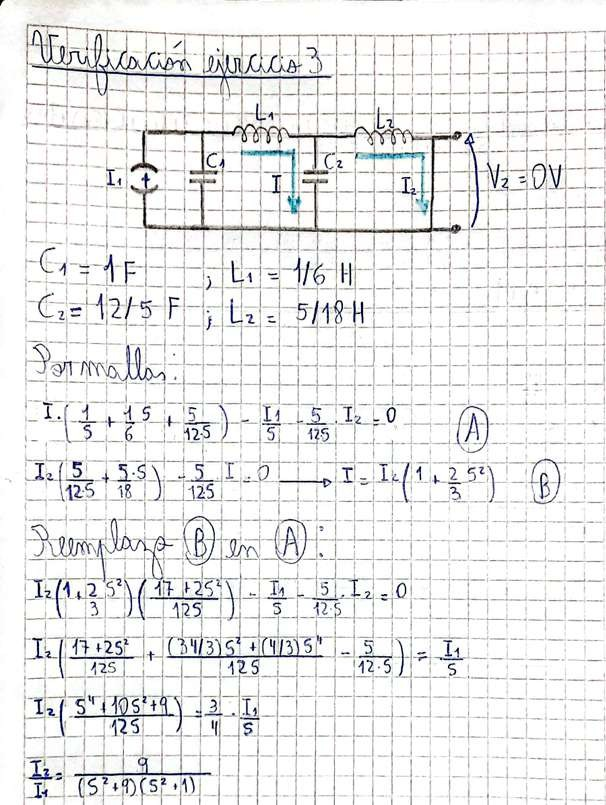 Verificación ejercicio 3
L1 L2
I1 + C1 I C2 I2 V2 = 0V
C1 = 1 F ; L1 = 1/6 H
C2 = 12/5 F ; L2 = 5/18 H
Por mallas:
I.(1/S + 1/6 S + 5/12S) - I1/S - 5/12S . I2 = 0 (A)
I2(5/12S + 5.S/18) - 5/12S I = 0 → I = I2(1 + 2/3 S²) (B)
Reemplazo (B) en (A):
I2(1 + 2/3 S²)(17 + 2S²/12S) - I1/S - 5/12.S . I2 = 0
I2(17 + 2S²/12S + (34/3)S² + (4/3)S⁴/12S - 5/12.S) = I1/S
I2(S⁴ + 10S² + 9/12S) = 3/4 . I1/S
I2/I1 = 9/(S² + 9)(S² + 1)